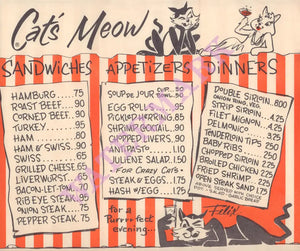 Cat's Meow
SANDWICHES
HAMBURG .75
ROAST BEEF .90
CORNED BEEF .90
TURKEY .95
HAM .65
HAM & SWISS .90
SWISS .65
GRILLED CHEESE .65
LIVERWURST .65
BACON-LET-TOM
RIB EYE STEAK .95
ONION STEAK
PEPPER STEAK .75
APPETIZERS
SOUPE JOUR CUP .30
BOWL .50
EGG ROLLS .90
PICKLED HERRING .85
SHRIMP COCKTAIL
CHOPPED LIVERS .90
ANTIPASTO 1.10
JULIENE SALAD 1.50
- For Crazy Cats -
STEAK & EGGS 1.75
HASH W/EGG 1.25
for a
Purrr-fect
evening...
DINNERS
DOUBLE SIRLOIN 8.00
ONION RING, ETC.
STRIP SIRLOIN 4.25
FILET MIGNON
DELMONICO
TENDERLOIN TIPS
BABY RIBS
CHOPPED SIRLOIN 2.25
BROILED CHICKEN
FRIED SHRIMP
OPEN STEAK SAND. 1.75
Felix